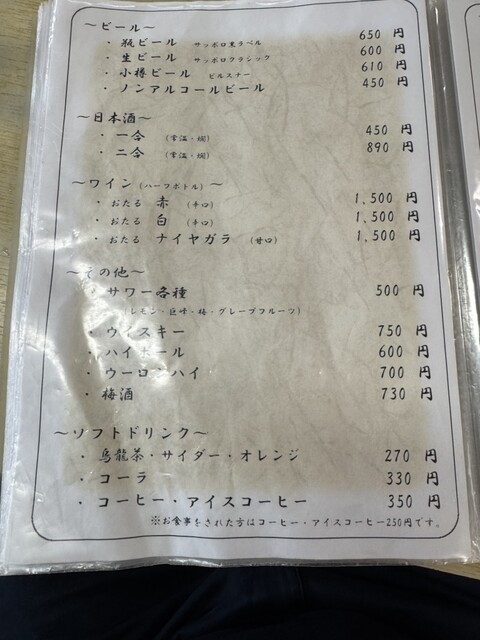 ～ビール～
・瓶ビール サッポロ黒ラベル 650 円
・生ビール サッポロクラシック 600 円
・小樽ビール ピルスナー 610 円
・ノンアルコールビール 450 円
～日本酒～
・一合 (常温・燗) 450 円
・二合 (常温・燗) 890 円
～ワイン(ハーフボトル)～
・おたる 赤 (辛口) 1,500 円
・おたる 白 (辛口) 1,500 円
・おたる ナイヤガラ (甘口) 1,500 円
～その他～
・サワー各種 500 円
(レモン・巨峰・梅・グレープフルーツ)
・ウイスキー 750 円
・ハイボール 600 円
・ウーロンハイ 700 円
・梅酒 730 円
～ソフトドリンク～
・烏龍茶・サイダー・オレンジ 270 円
・コーラ 330 円
・コーヒー・アイスコーヒー 350 円
※お食事をされた方はコーヒー・アイスコーヒー250円です。